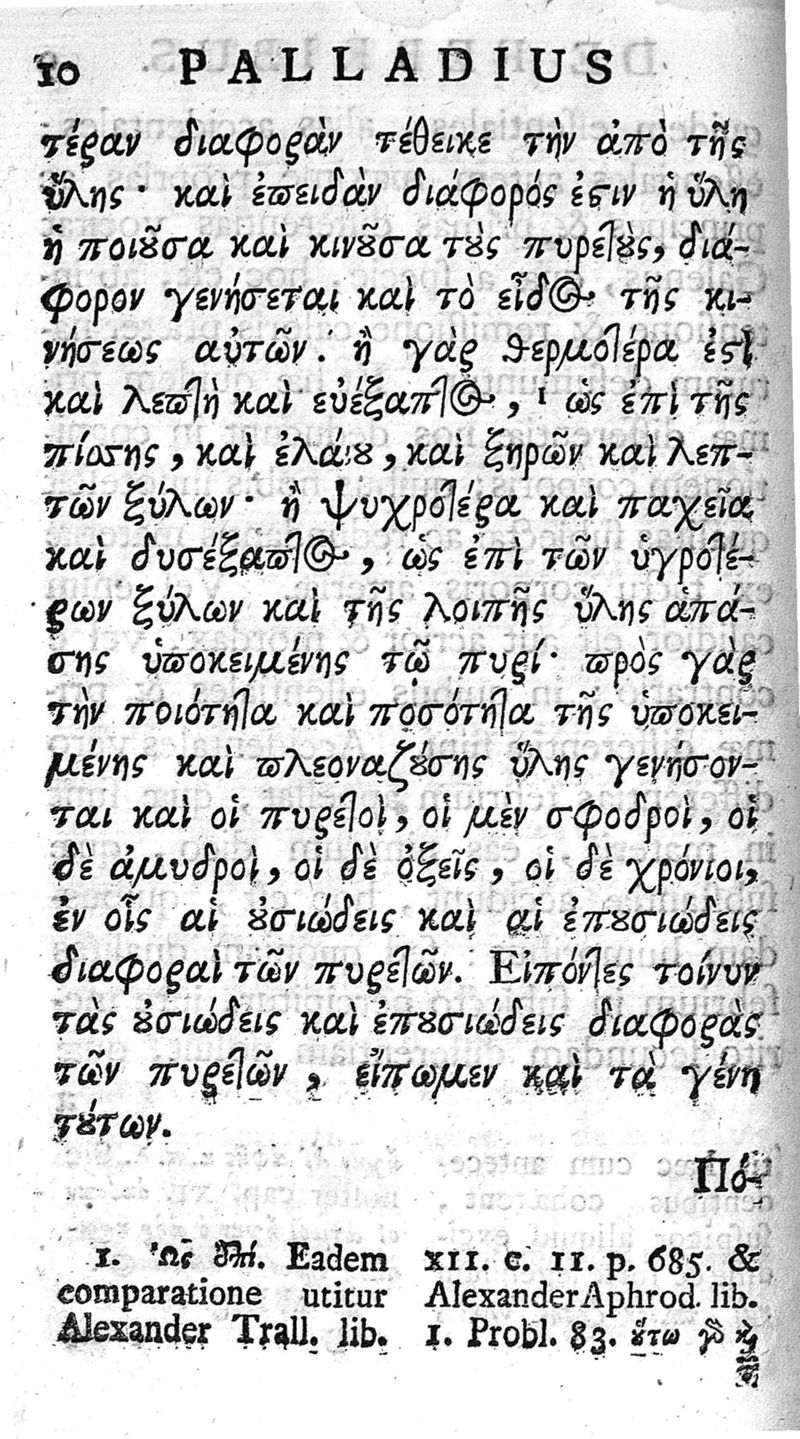 10 PALLADIUS
τέραν διαφορὰν τέθεικε τὴν ἀπὸ τῆς
ὕλης· καὶ ἐπειδὰν διάφορός ἐϛιν ἡ ὕλη
ἡ ποιȣ͂σα καὶ κινȣ͂σα τȣ̀ς πυρετȣ̀ς, διά-
φορον γενήσεται καὶ τὸ εἶδος τῆς κι-
νήσεως αὐτῶν· ἢ γὰρ θερμοτέρα ἐϛὶ
καὶ λεπτὴ καὶ εὐέξαπτος, 1 ὡς ἐπὶ τῆς
πίσσης, καὶ ἐλαίȣ, καὶ ξηρῶν καὶ λεπ-
τῶν ξύλων· ἢ ψυχροτέρα καὶ παχεῖα
καὶ δυσέξαπτος, ὡς ἐπὶ τῶν ὑγροτέ-
ρων ξύλων καὶ τῆς λοιπῆς ὕλης ἁπά-
σης ὑποκειμένης τῷ πυρί· πρὸς γὰρ
τὴν ποιότητα καὶ ποσότητα τῆς ὑποκει-
μένης καὶ πλεοναζȣ́σης ὕλης γενήσον-
ται καὶ οἱ πυρετοὶ, οἱ μὲν σφοδροὶ, οἱ
δὲ ἀμυδροὶ, οἱ δὲ ὀξεῖς, οἱ δὲ χρόνιοι,
ἐν οἷς αἱ ȣ̓σιώδεις καὶ αἱ ἐπȣσιώδεις
διαφοραὶ τῶν πυρετῶν. Εἰπόντες τοίνυν
τὰς ȣ̓σιώδεις καὶ ἐπȣσιώδεις διαφορὰς
τῶν πυρετῶν, εἴπωμεν καὶ τὰ γένη
τȣ́των.
Πό-
1. Ὡς ἐπί. Eadem
comparatione utitur
Alexander Trall. lib.
XII. c. 11. p. 685. &
Alexander Aphrod. lib.
1. Probl. 83. ȣ̔́τω γὸ κὶ